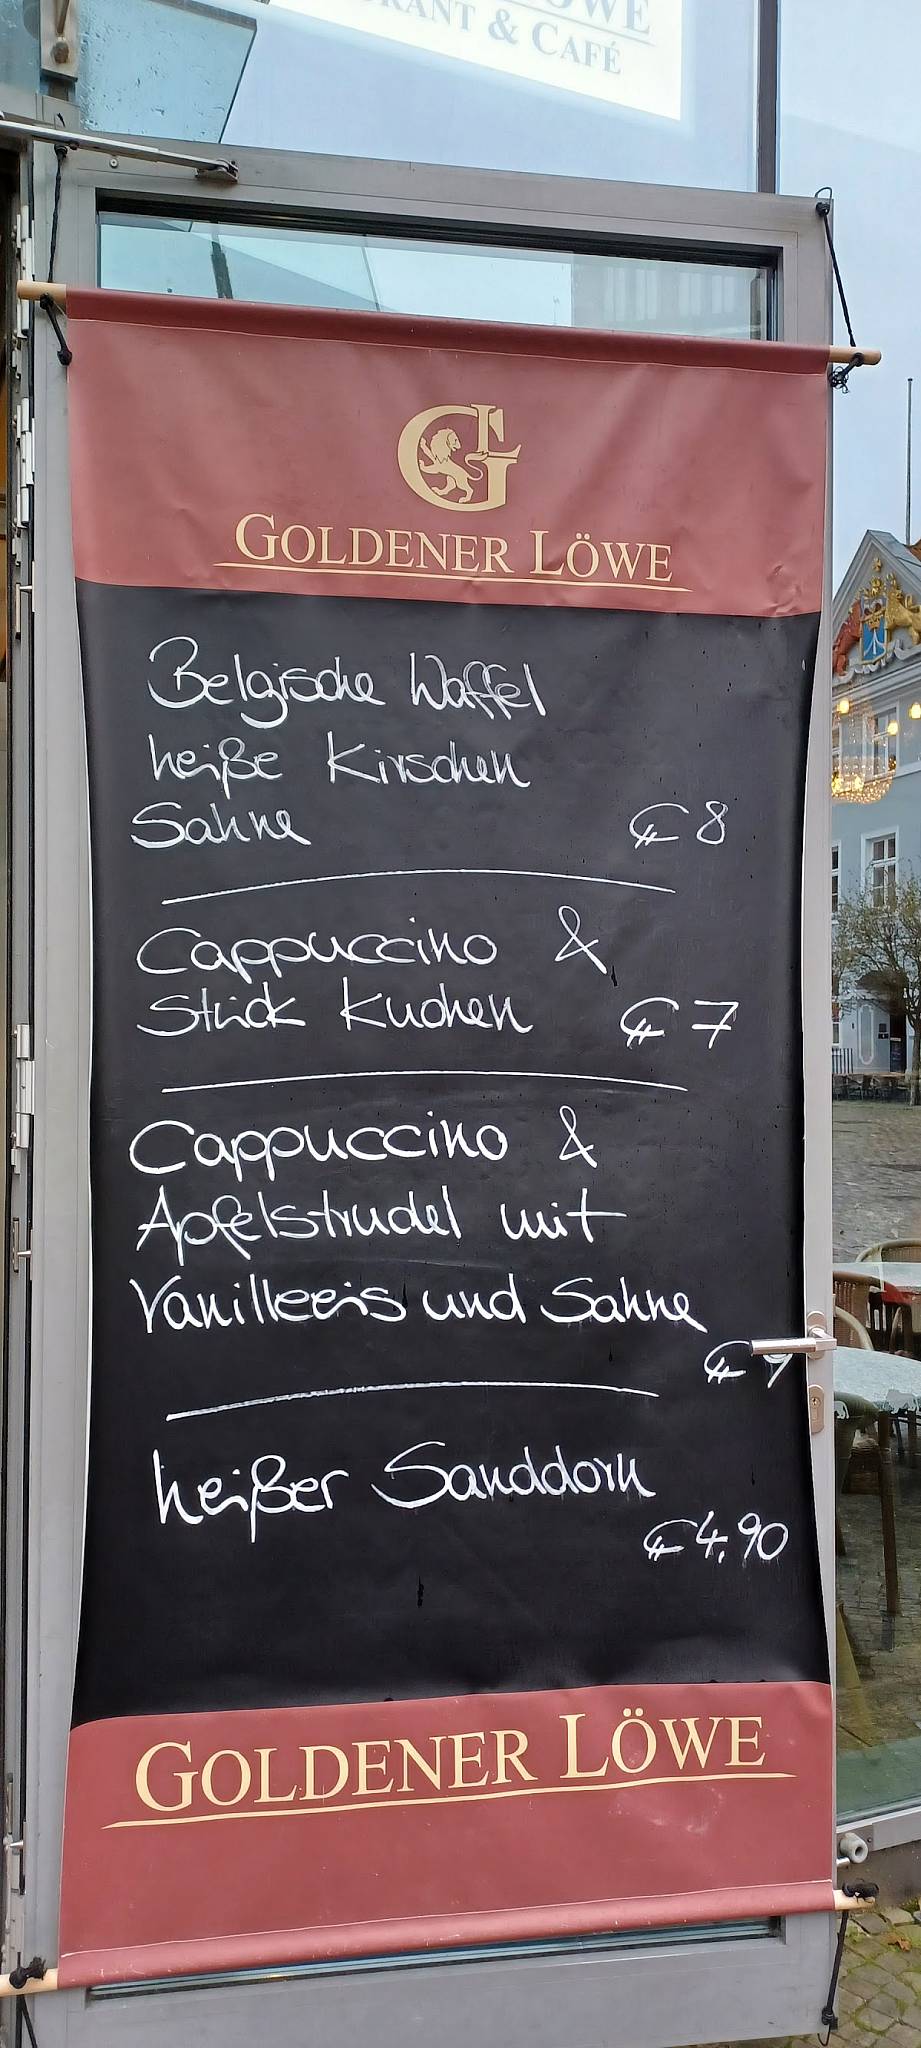 LÖWE
RANT & CAFÉ
GL
GOLDENER LÖWE
Belgische Waffel
heiße Kirschen
Sahne € 8
Cappuccino &
Stück Kuchen € 7
Cappuccino &
Apfelstrudel mit
Vanilleeis und Sahne
€ 9
heißer Sanddorn
€ 4,90
GOLDENER LÖWE